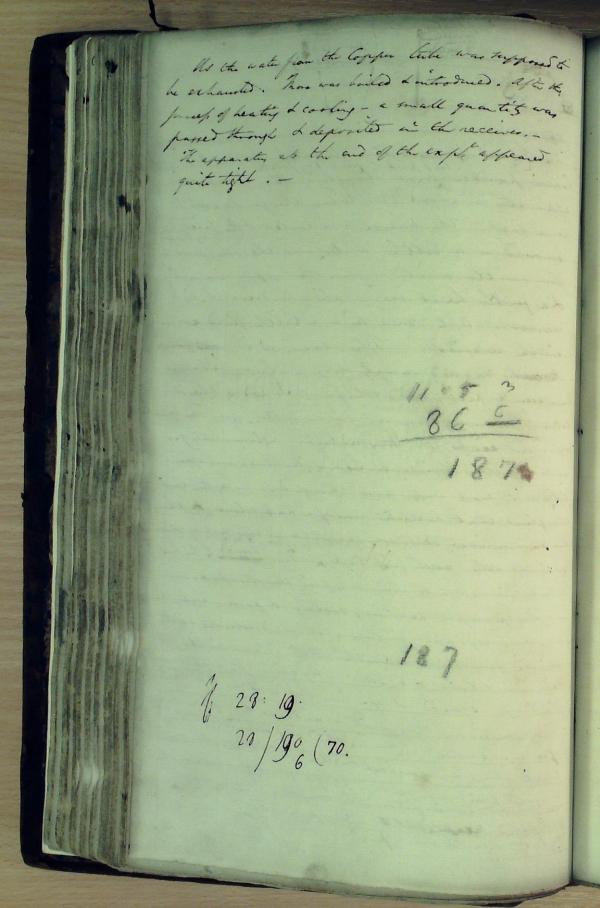 As the water from the Copper tube was supposed to
be exhausted. More was boiled & introduced. After the
process of heating & cooling – a small quantity was
passed through & deposited in the receiver. –
The apparatus at the end of the expt appeared
quite tight. –
11 5 3
8 6 6
187
187
28. 19.
28 / 190 ( 70.
6